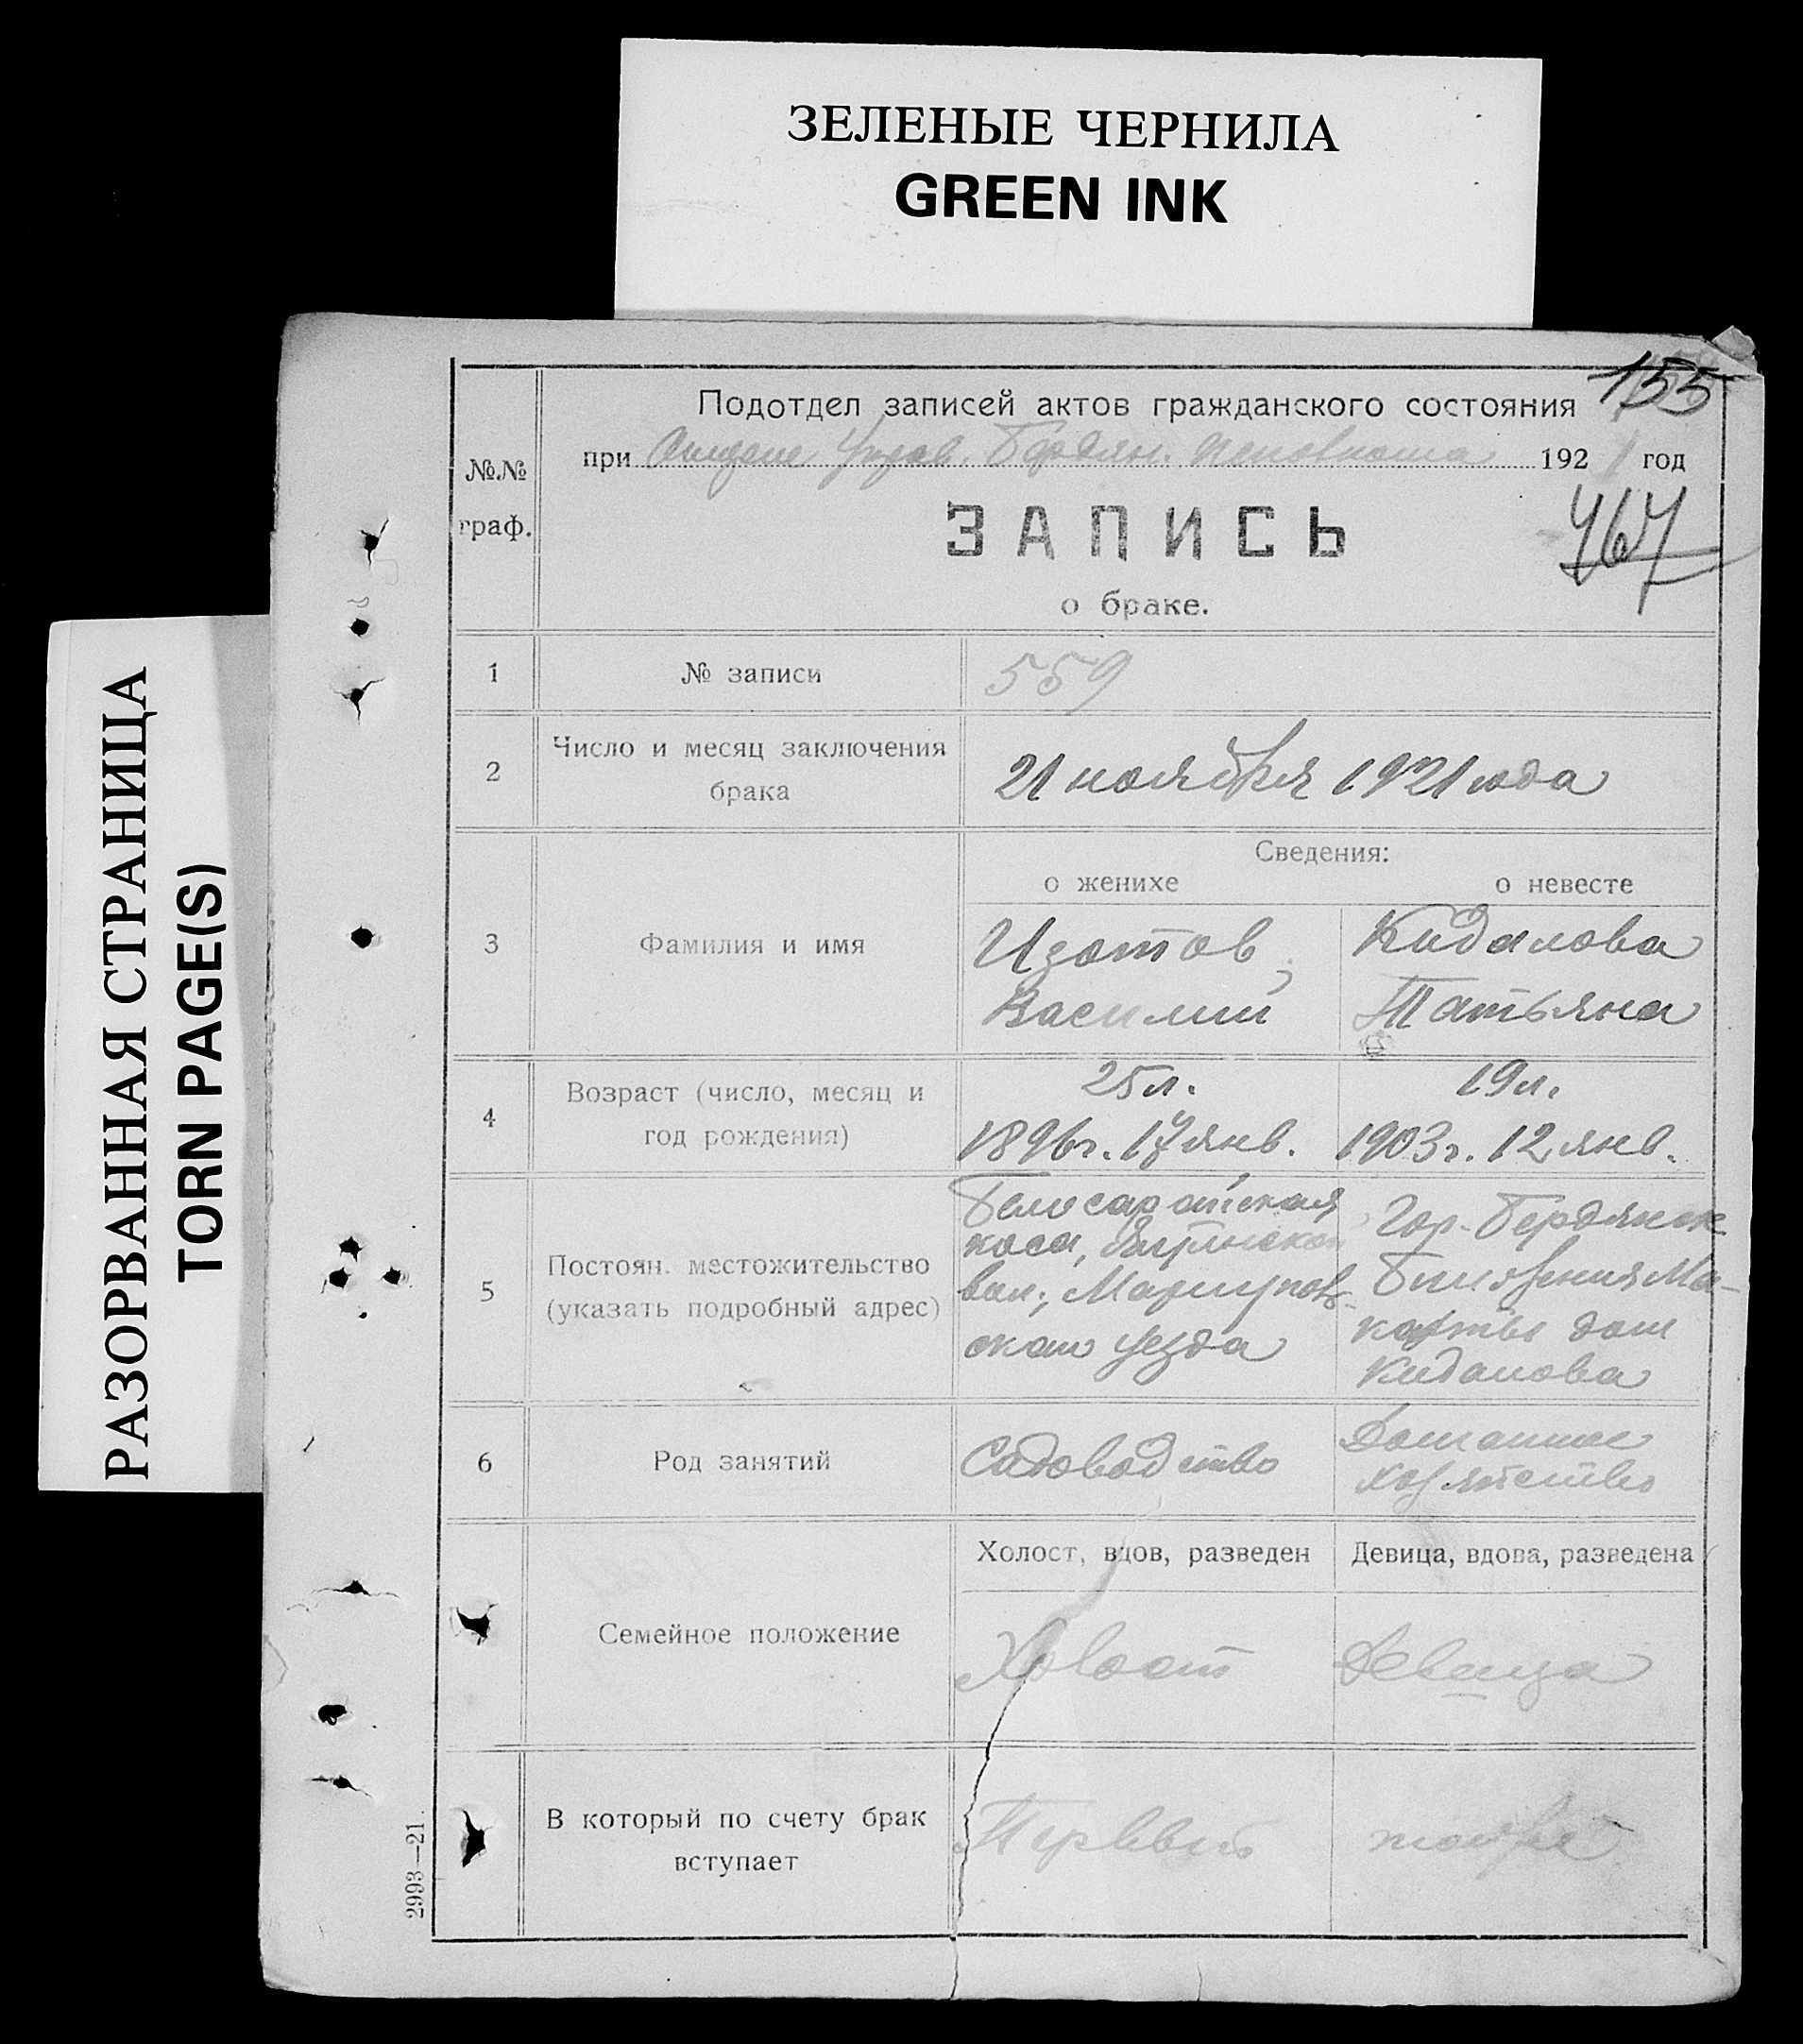 ЗЕЛЕНЫЕ ЧЕРНИЛА
GREEN INK
РАЗОРВАННАЯ СТРАНИЦА
TORN PAGE(S)
155
№№
граф.
Подотдел записей актов гражданского состояния
при Отделе Управ. Бердян. Исполкома 1921 год
ЗАПИСЬ
467
о браке.
1 № записи 559
2 Число и месяц заключения
брака
21 ноября 1921 года
Сведения:
о женихе о невесте
3 Фамилия и имя
Изотов, Кидалова
Василий Татьяна
4 Возраст (число, месяц и
год рождения)
25 л. 19 л.
1896 г. 17 янв. 1903 г. 12 янв.
5 Постоян. местожительство
(указать подробный адрес)
Белосарайская
коса,
вол., Мариуполь-
скаго уезда
Гор. Бердянск
Ма-
дом
Кидалова
6 Род занятий
Садоводство
Домашнее
хозяйство
Холост, вдов, разведен Девица, вдова, разведена
Семейное положение
Холост Девица
В который по счету брак
вступает
Первый тоже
2993—21.